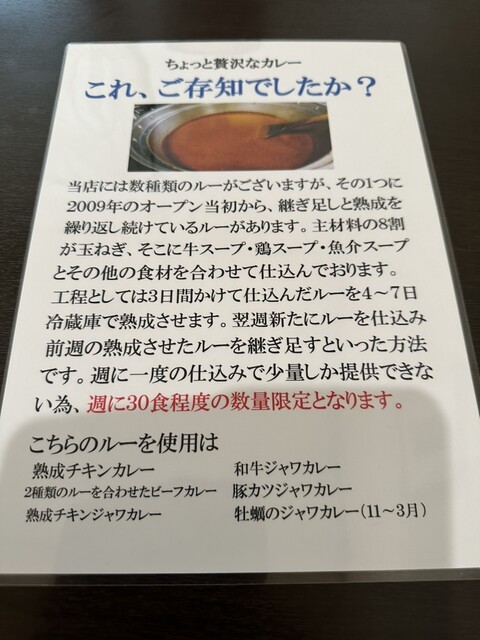 ちょっと贅沢なカレー
これ、ご存知でしたか？
当店には数種類のルーがございますが、その1つに
2009年のオープン当初から、継ぎ足しと熟成を
繰り返し続けているルーがあります。主材料の8割
が玉ねぎ、そこに牛スープ・鶏スープ・魚介スープ
とその他の食材を合わせて仕込んでおります。
工程としては3日間かけて仕込んだルーを4～7日
冷蔵庫で熟成させます。翌週新たにルーを仕込み
前週の熟成させたルーを継ぎ足すといった方法
です。週に一度の仕込みで少量しか提供できな
い為、週に30食程度の数量限定となります。
こちらのルーを使用は
熟成チキンカレー 和牛ジャワカレー
2種類のルーを合わせたビーフカレー 豚カツジャワカレー
熟成チキンジャワカレー 牡蠣のジャワカレー（11～3月）